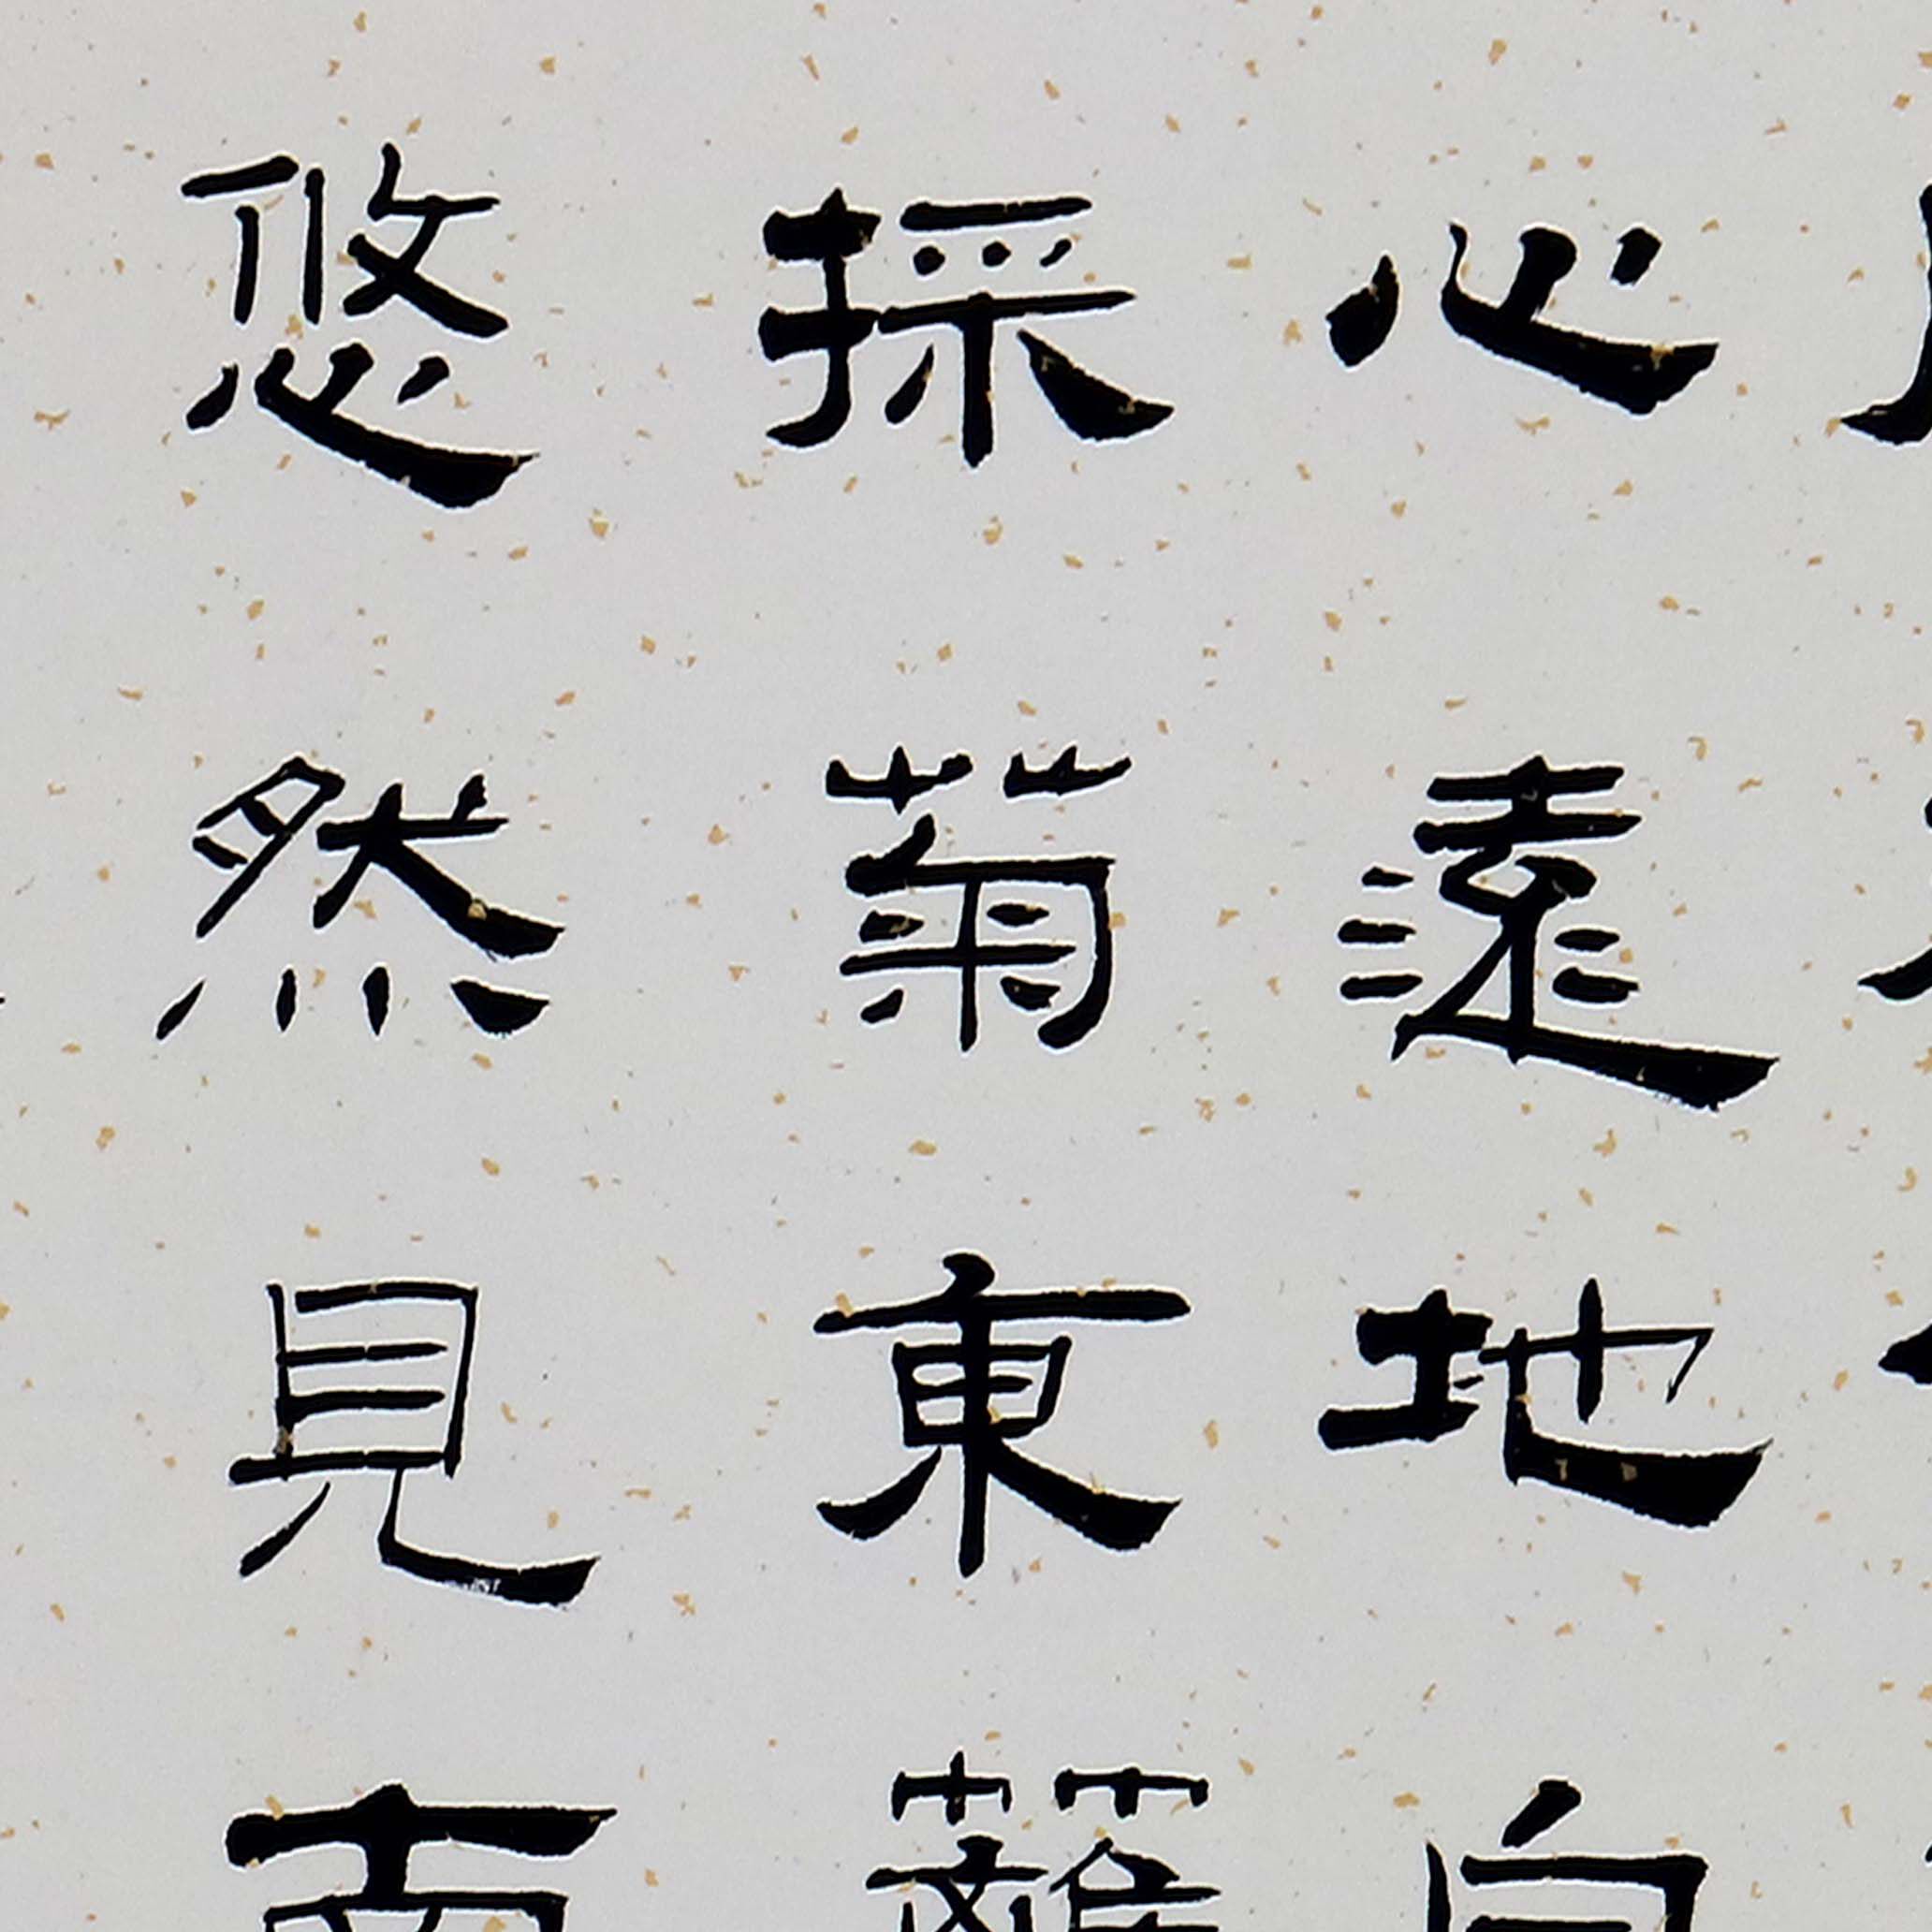 心遠地自
採菊東蘺
悠然見南